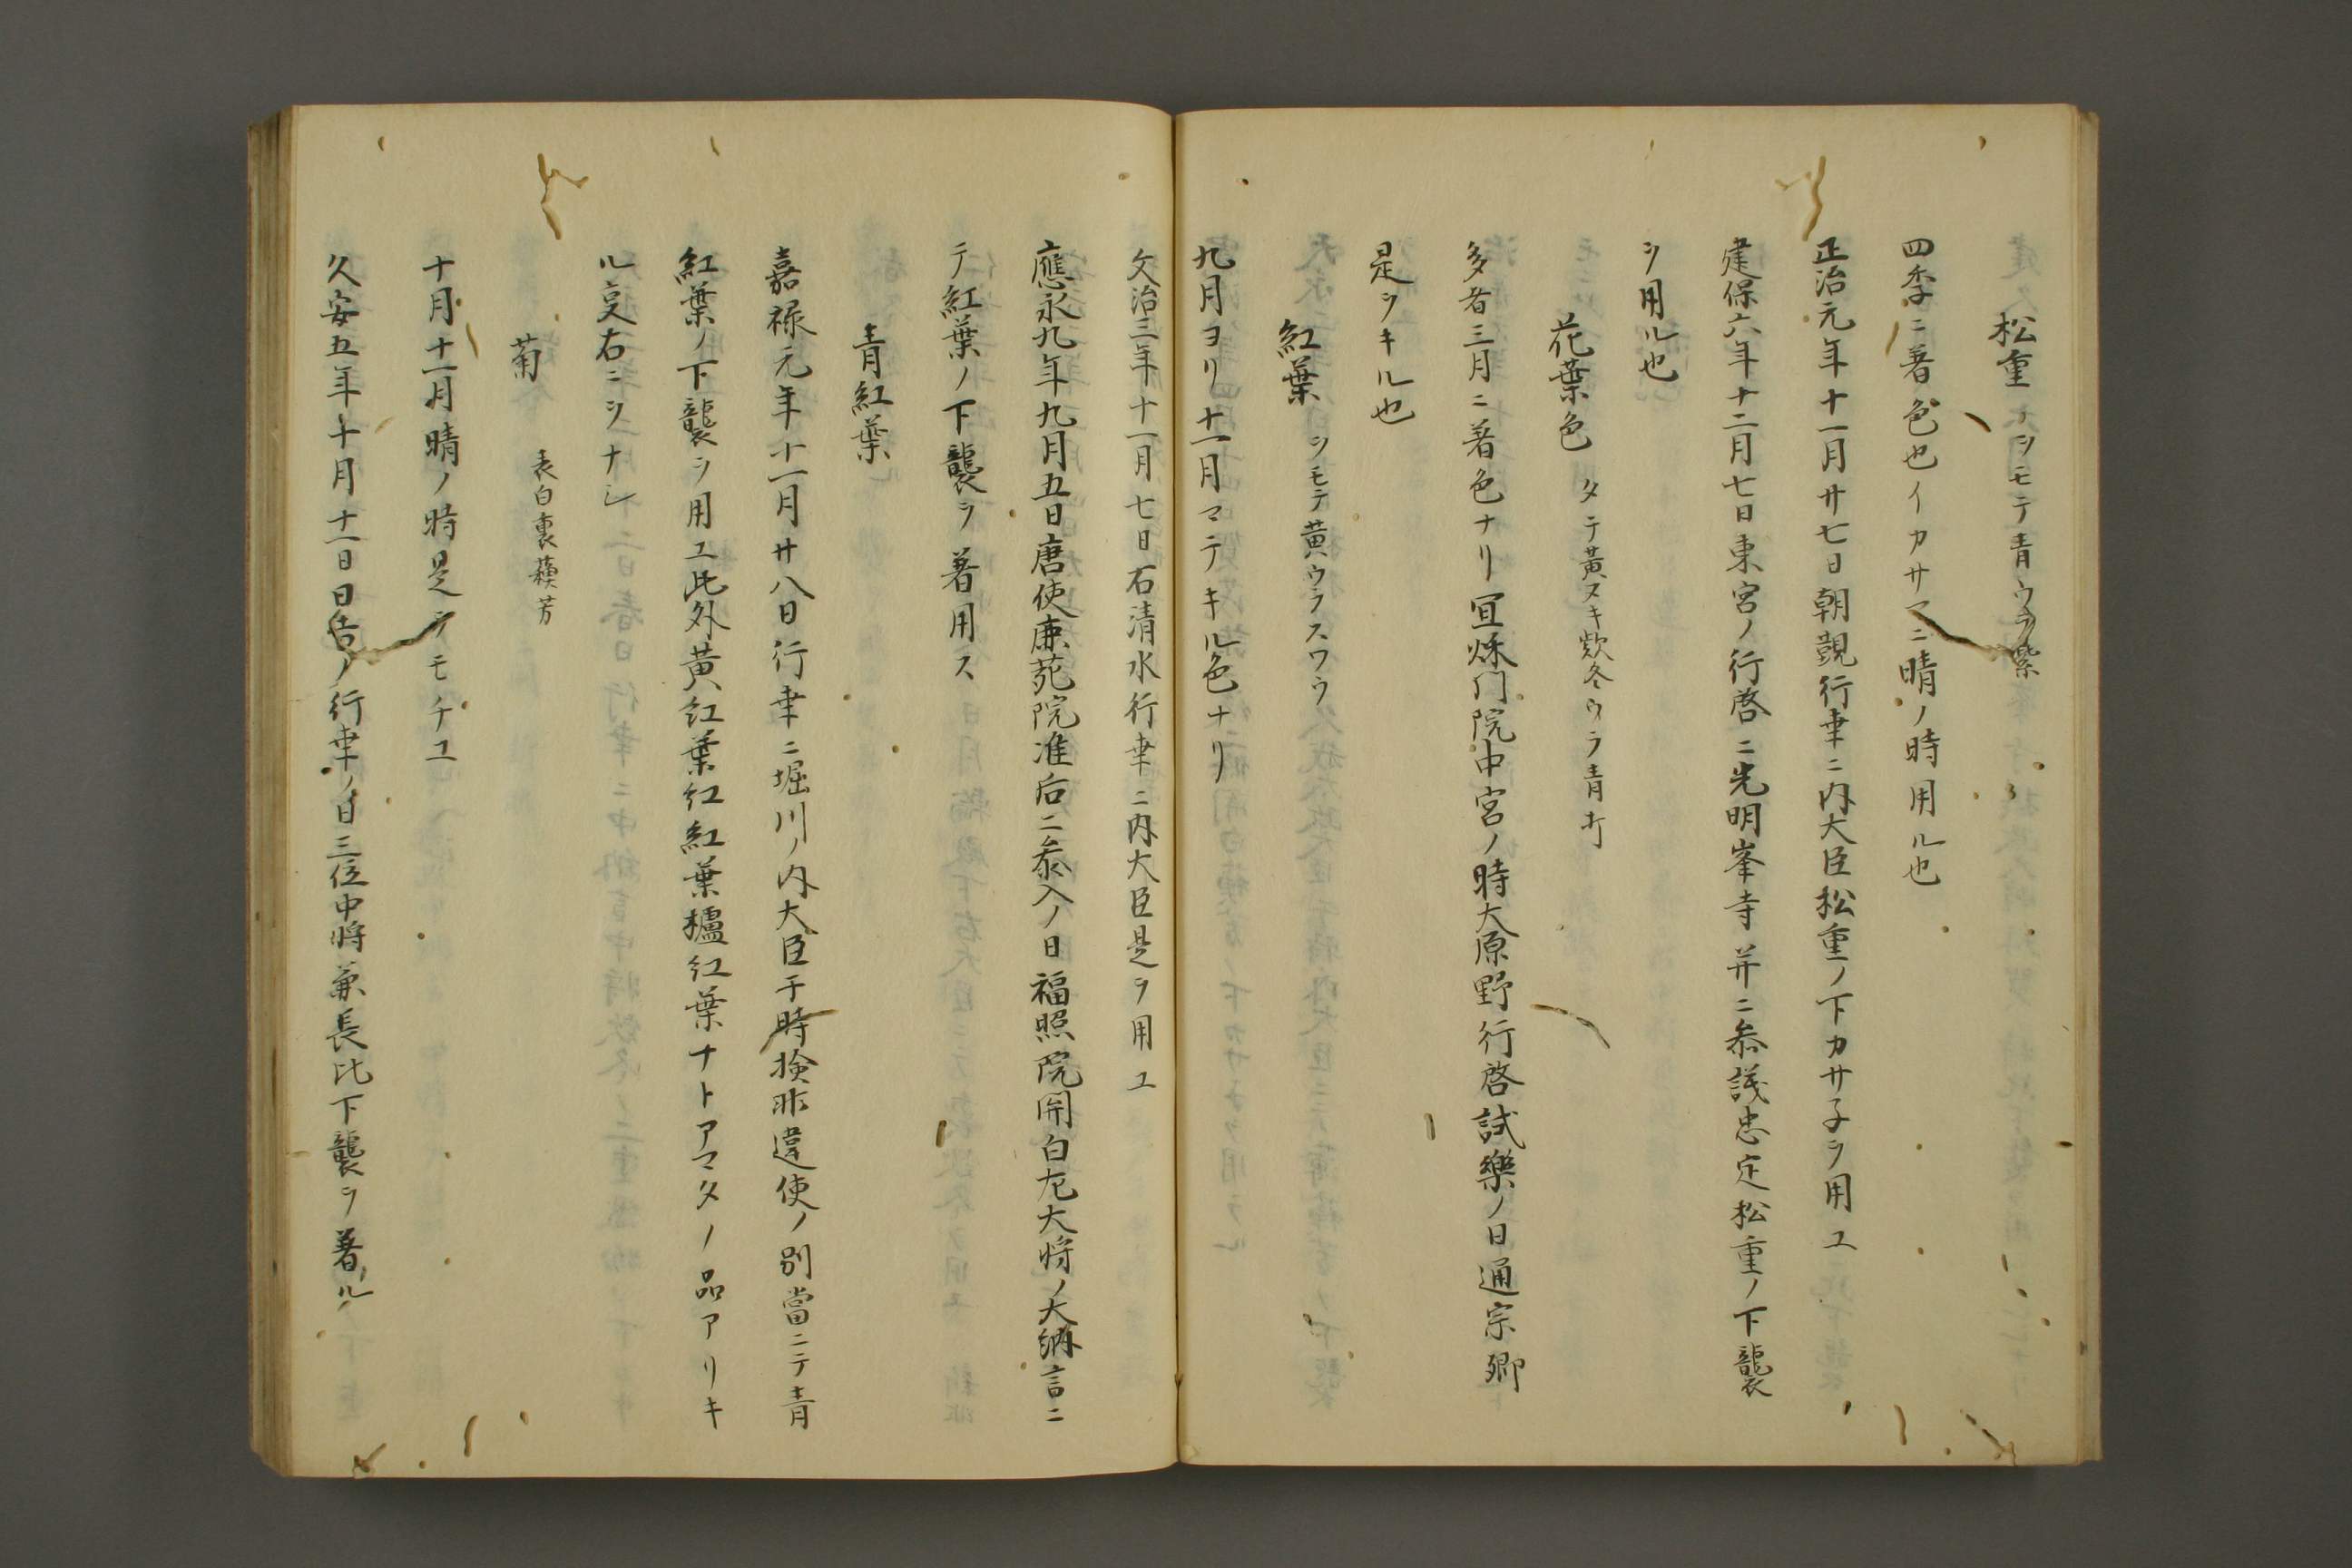 松重 ヲシモテ青ウラ紫
四季ニ著色也イカサマニ晴ノ時用ル也
正治元年十一月廿七日朝覲行幸ニ内大臣松重ノ下カサ子ヲ用ユ
建保六年十二月七日東宮ノ行啓ニ光明峯寺并ニ叅議忠定松重ノ下襲
ヲ用ル也
花葉色 タテ黄ヌキ欵冬ウラ青打
多者三月ニ著色ナリ宜烁门院中宮ノ時大原野行啓試樂ノ日通宗卿
是ヲキル也
紅葉 ヲモテ黄ウラスワウ
九月ヨリ十一月マテキル色ナリ
文治三年十一月七日石清水行幸ニ内大臣是ヲ用ユ
應永九年九月五日唐使鹿苑院准后ニ叅入ノ日福照院関白左大将ノ大納言ニ
テ紅葉ノ下襲ヲ著用ス
青紅葉
嘉禄元年十一月廿八日行幸ニ堀川ノ内大臣于時撿非違使ノ別當ニテ青
紅葉ノ下襲ヲ用ユ此外黄紅葉紅紅葉櫨紅葉ナトアマタノ品アリキ
ル㕝右ニヲナシ
菊 表白裏蘓芳
十月十一月晴ノ時是ヲモチユ
久安五年十月十一日日吉ノ行幸ノ日三位中将兼長比下襲ヲ著ル